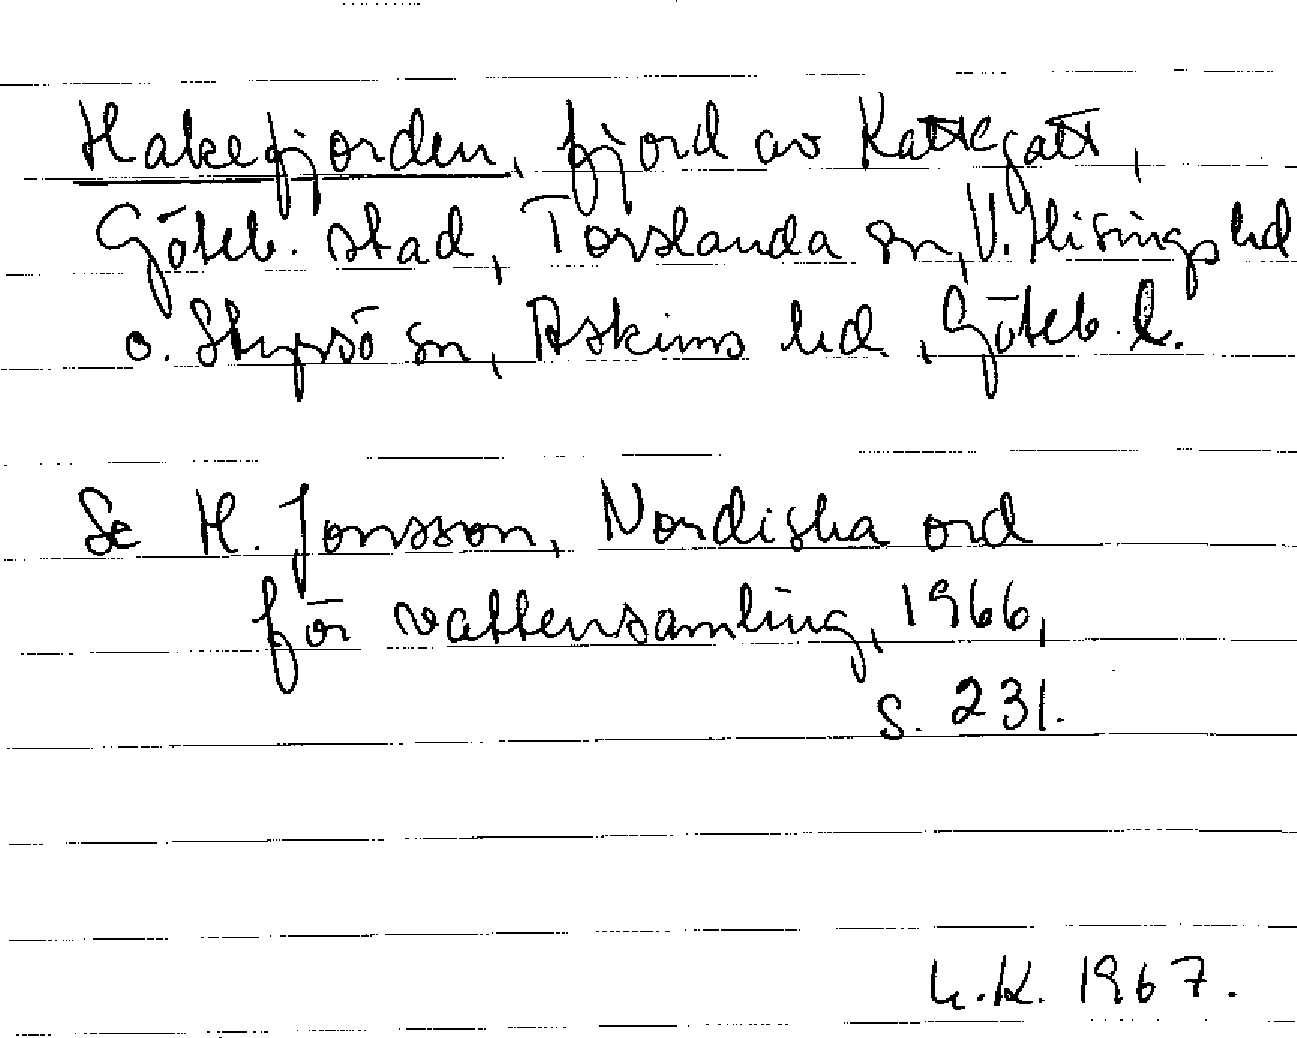 Hakefjorden, fjord av Kattegatt,
Göteb. stad, Torslanda sn, V. Hisings hd
o. Styrsö sn, Askims hd, Göteb. l.
Se H. Jonsson, Nordiska ord
för vattensamling, 1966,
s. 231.
K. 1967.